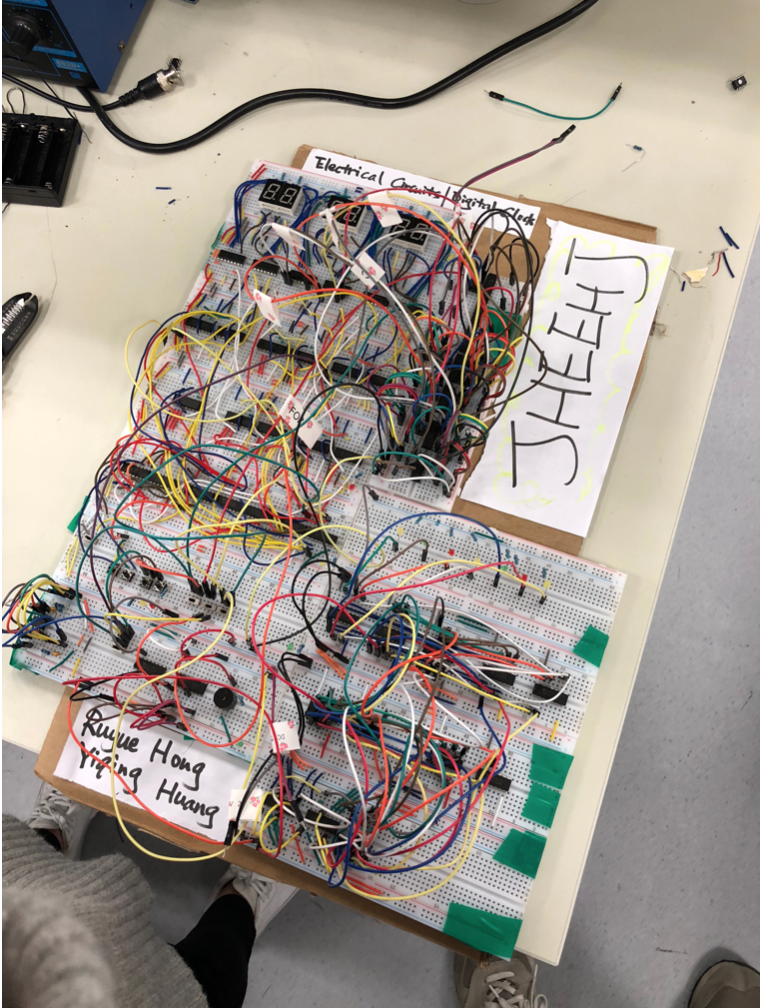 Electrical Circuits / Digital Clock
JHEEHJ
Ruyue Hong
Yiqing Huang